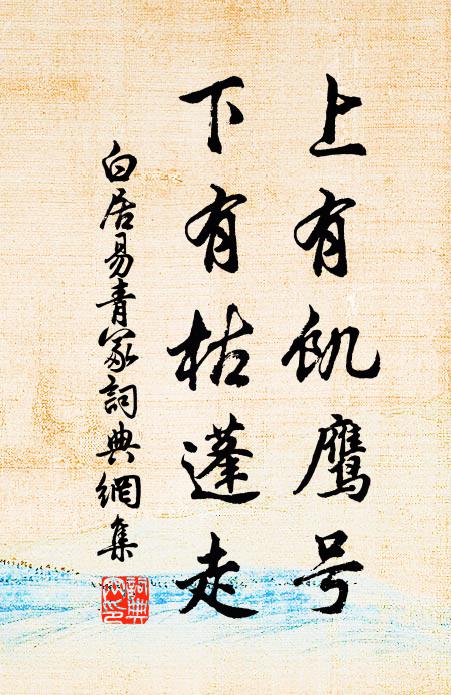 上有飢鹰号
下有枯蓬走
白居易青冢詞典網集